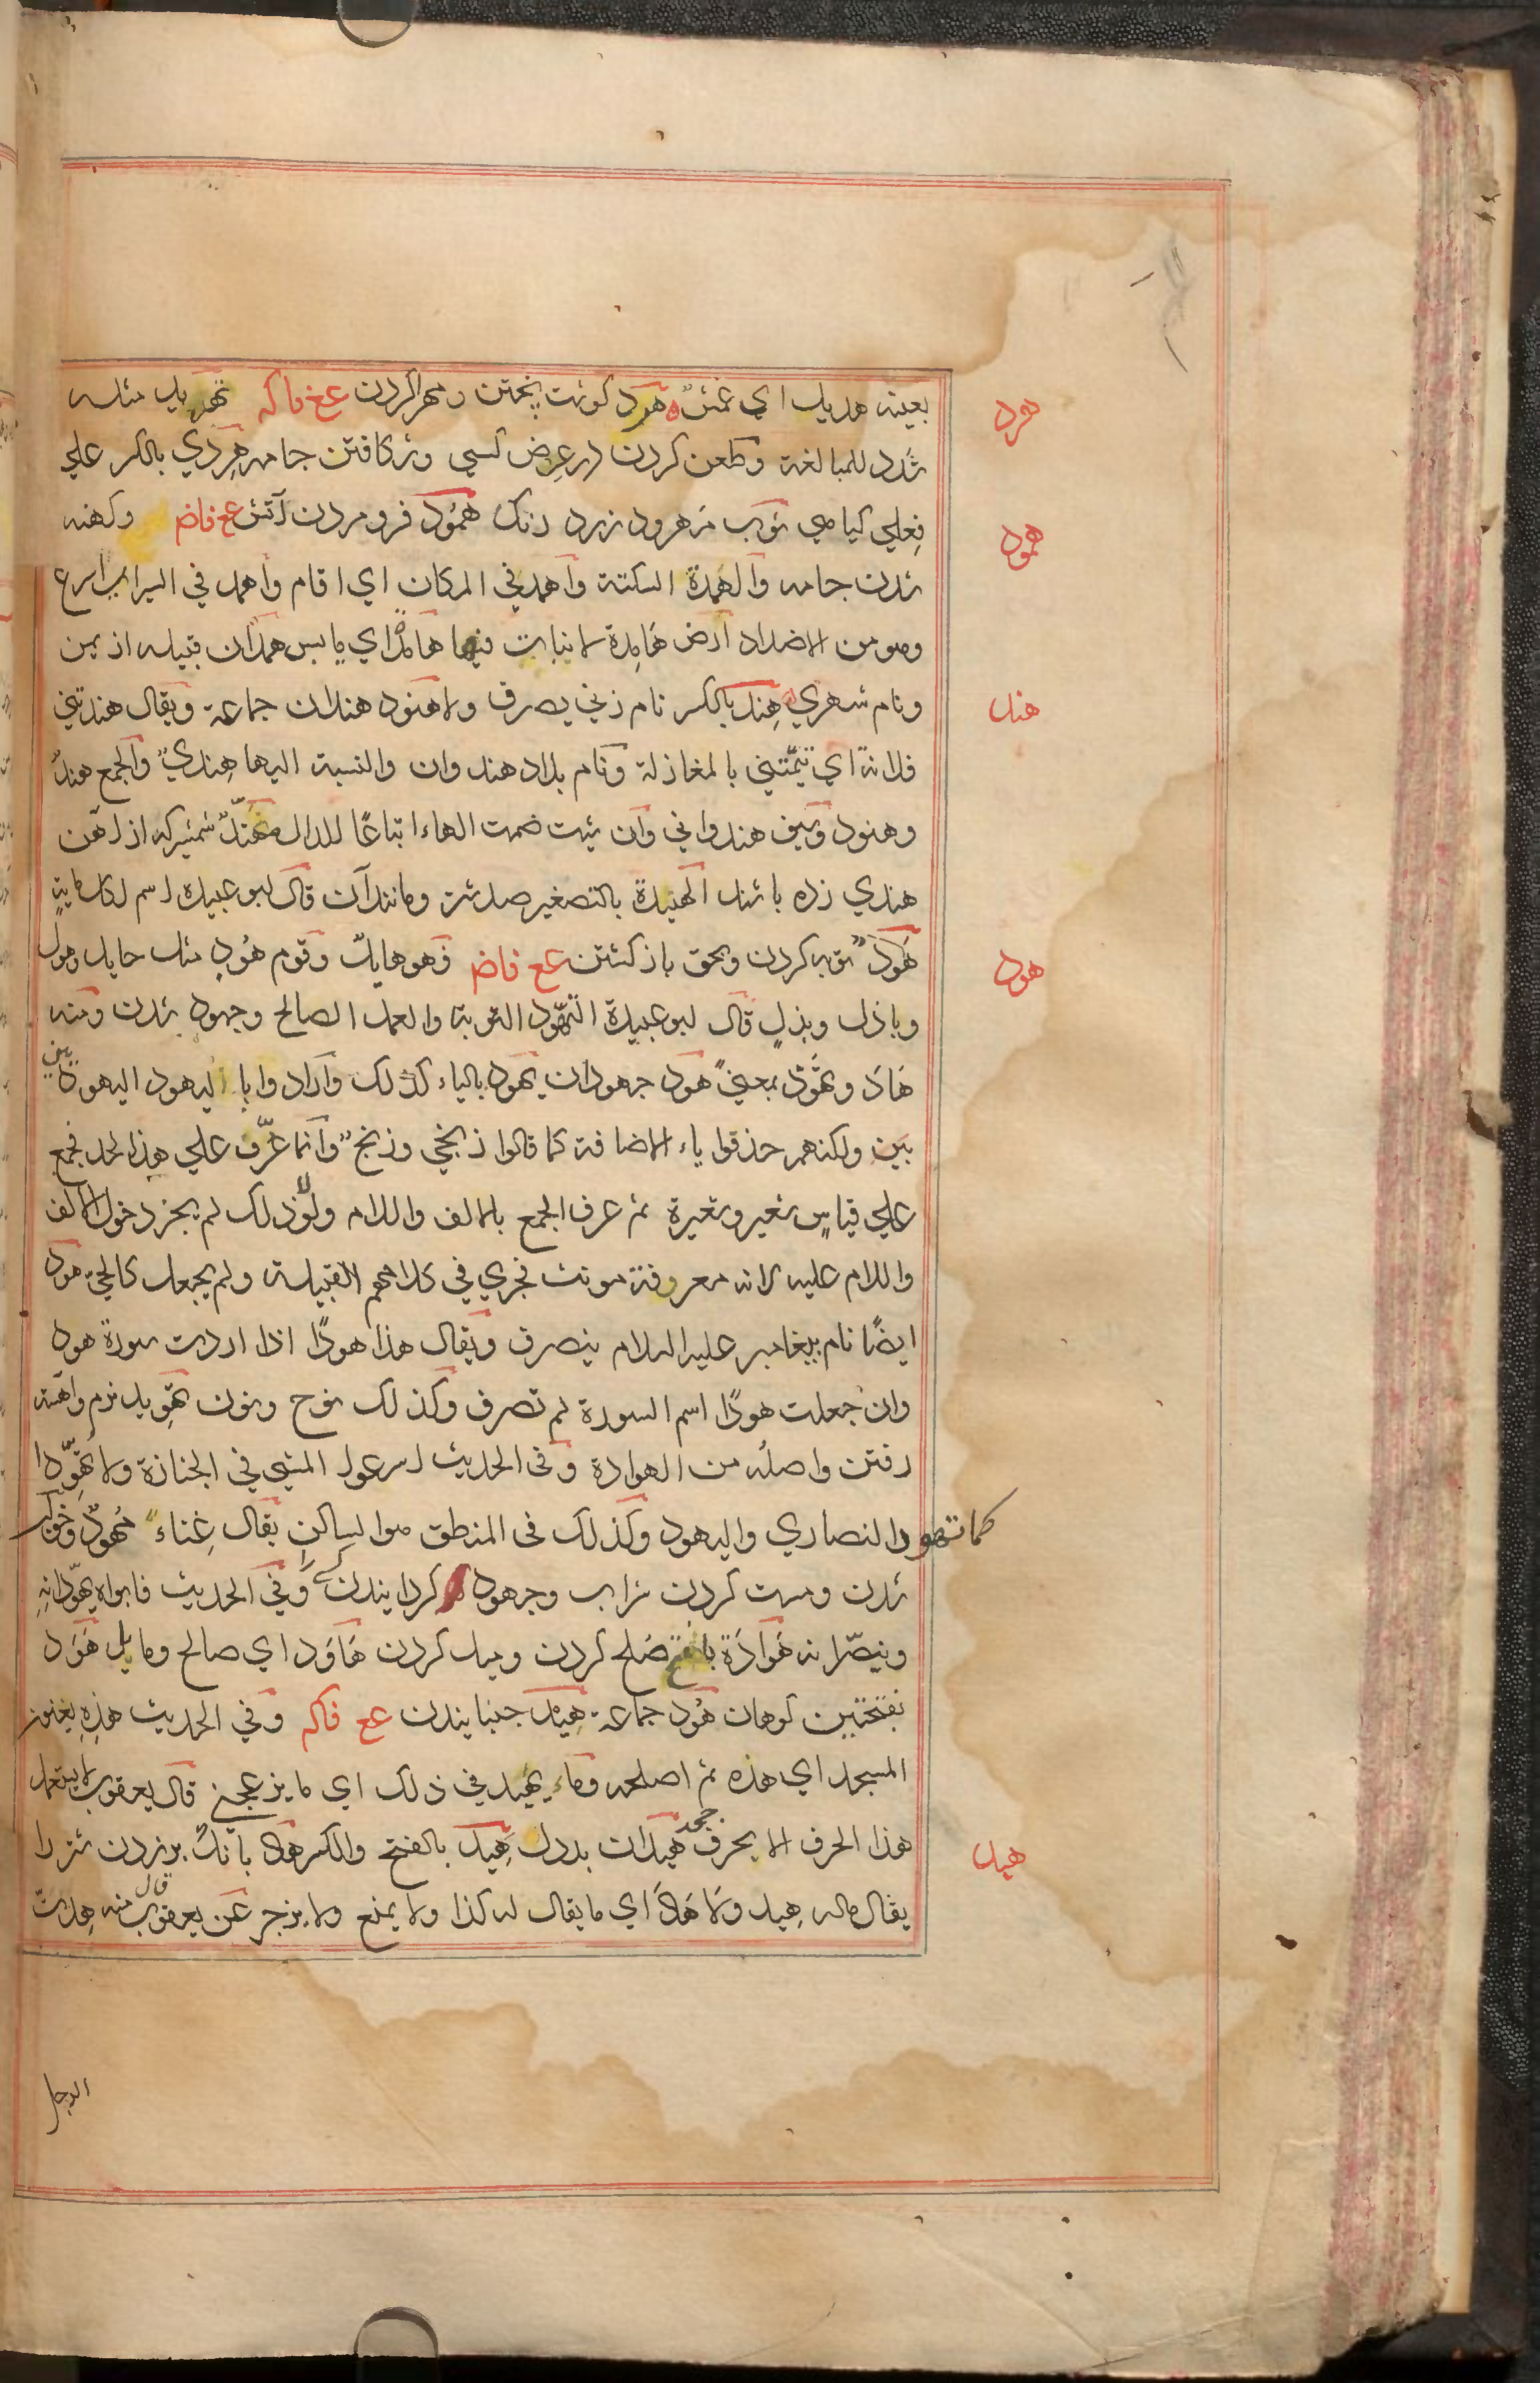 بعينه هدبد اي عمش هرد كوشت پختن ومهرا كردن عع فاكه تهريد مثله
هرد
شدد للمبالغة وطعن كردن در عرض كسي وشكافتن جامه هِردي بالكسر علي
فِعلي كياهي ثوب مهرود زرد رنك همُود فرو مردن آتش عع فاض وكهنه
همود
شدن جامه والهمدة السكتة واهمد في المكان اي اقام واهمد في السير اي اسرع
وهو من الاضداد ارض هَامِدة لا نبات فيها هامدٌ اي يابس همدان قبيله از يمن
ونام شهري هِند بالكسر نام زني يصرف ولا هنود هندات جماعة ويقال هندتني
هند
فلانة اي تيّمتني بالمغازلة ونام بلاد هند وان والنسبة اليها هِنديٌّ والجمع هندٌ
وهنود وسيف هندواني وان شئت ضمت الهاء اتباعًا للدال مهنّد شمشيركه از آهن
هندي زده باشند الهنيدة بالتصغير صد شتر ومانند آن قال ابو عبيدة اسم لكل ماية
هَودٌ توبه كردن وبحق باز كشتن عع فاض فهو هايدٌ وقوم هُود مثل حايل وحول
هود
وباذل وبذلٍ قال ابو عبيدة التهّود التوبة والعمل الصالح وجهود شدن ومنه
هَادَ وتهَوَّدَ بمعنيً هود جهودان يهود بالياء كذلك وارادوا با اليهود اليهوديين
بين ولكنهم حذفوا ياء الاضافة كما قالوا زنجي وزنج وانما عرّف علي هذا الحد فجمع
علي قياسٍ شعير وشعيرة ثم عرف الجمع بالالف واللام ولولا ذلك لم يجز دخول الالف
واللام عليه لانه معرفة مونث فجري في كلامهم القبيلة ولم يجعل كالحيّ هود
ايضًا نام پيغامبر عليه السلام ينصرف ويقال هذا هودًا اذا اردت سورة هود
وان جعلت هودًا اسم السورة لم تصرف وكذلك نوح ونون تهويد نرم واهسته
رفتن واصله من الهوادة وفي الحديث اسرعوا المشي في الجنازة ولا تهوِّدوا
كما تهود النصاري واليهود وكذلك في المنطق هو الساكن يقال غِناءٌ مُهوِّدٌ
شدن ومست كردن شراب وجهود كردانيدن كسي را وفي الحديث فابواه يهوّدانه
وينصّرانه هَوادَة بالفتح صلح كردن وميل كردن هَاوَد اي صالح ومايل هَوَد
بفتحتين كوهان هُود جماعة هِيد جنبانيدن عع فاكه وفي الحديث هِدْهُ
المسجد اي هذه ثم اصلحه وما يهيد في ذلك اي ما يزعجني قال يعقوب لا يستعمل
هذا الحرف الا بحرف جحد هيدان بددل هِيد بالفتح والكسر هاد بانك برزدن شتر را
هيد
يقال ماله هِيد ولا هَاد اي ما يقال له كذا ولا يمنع ولا يزجر عن يعقوب قال منه هِدت
الرجل